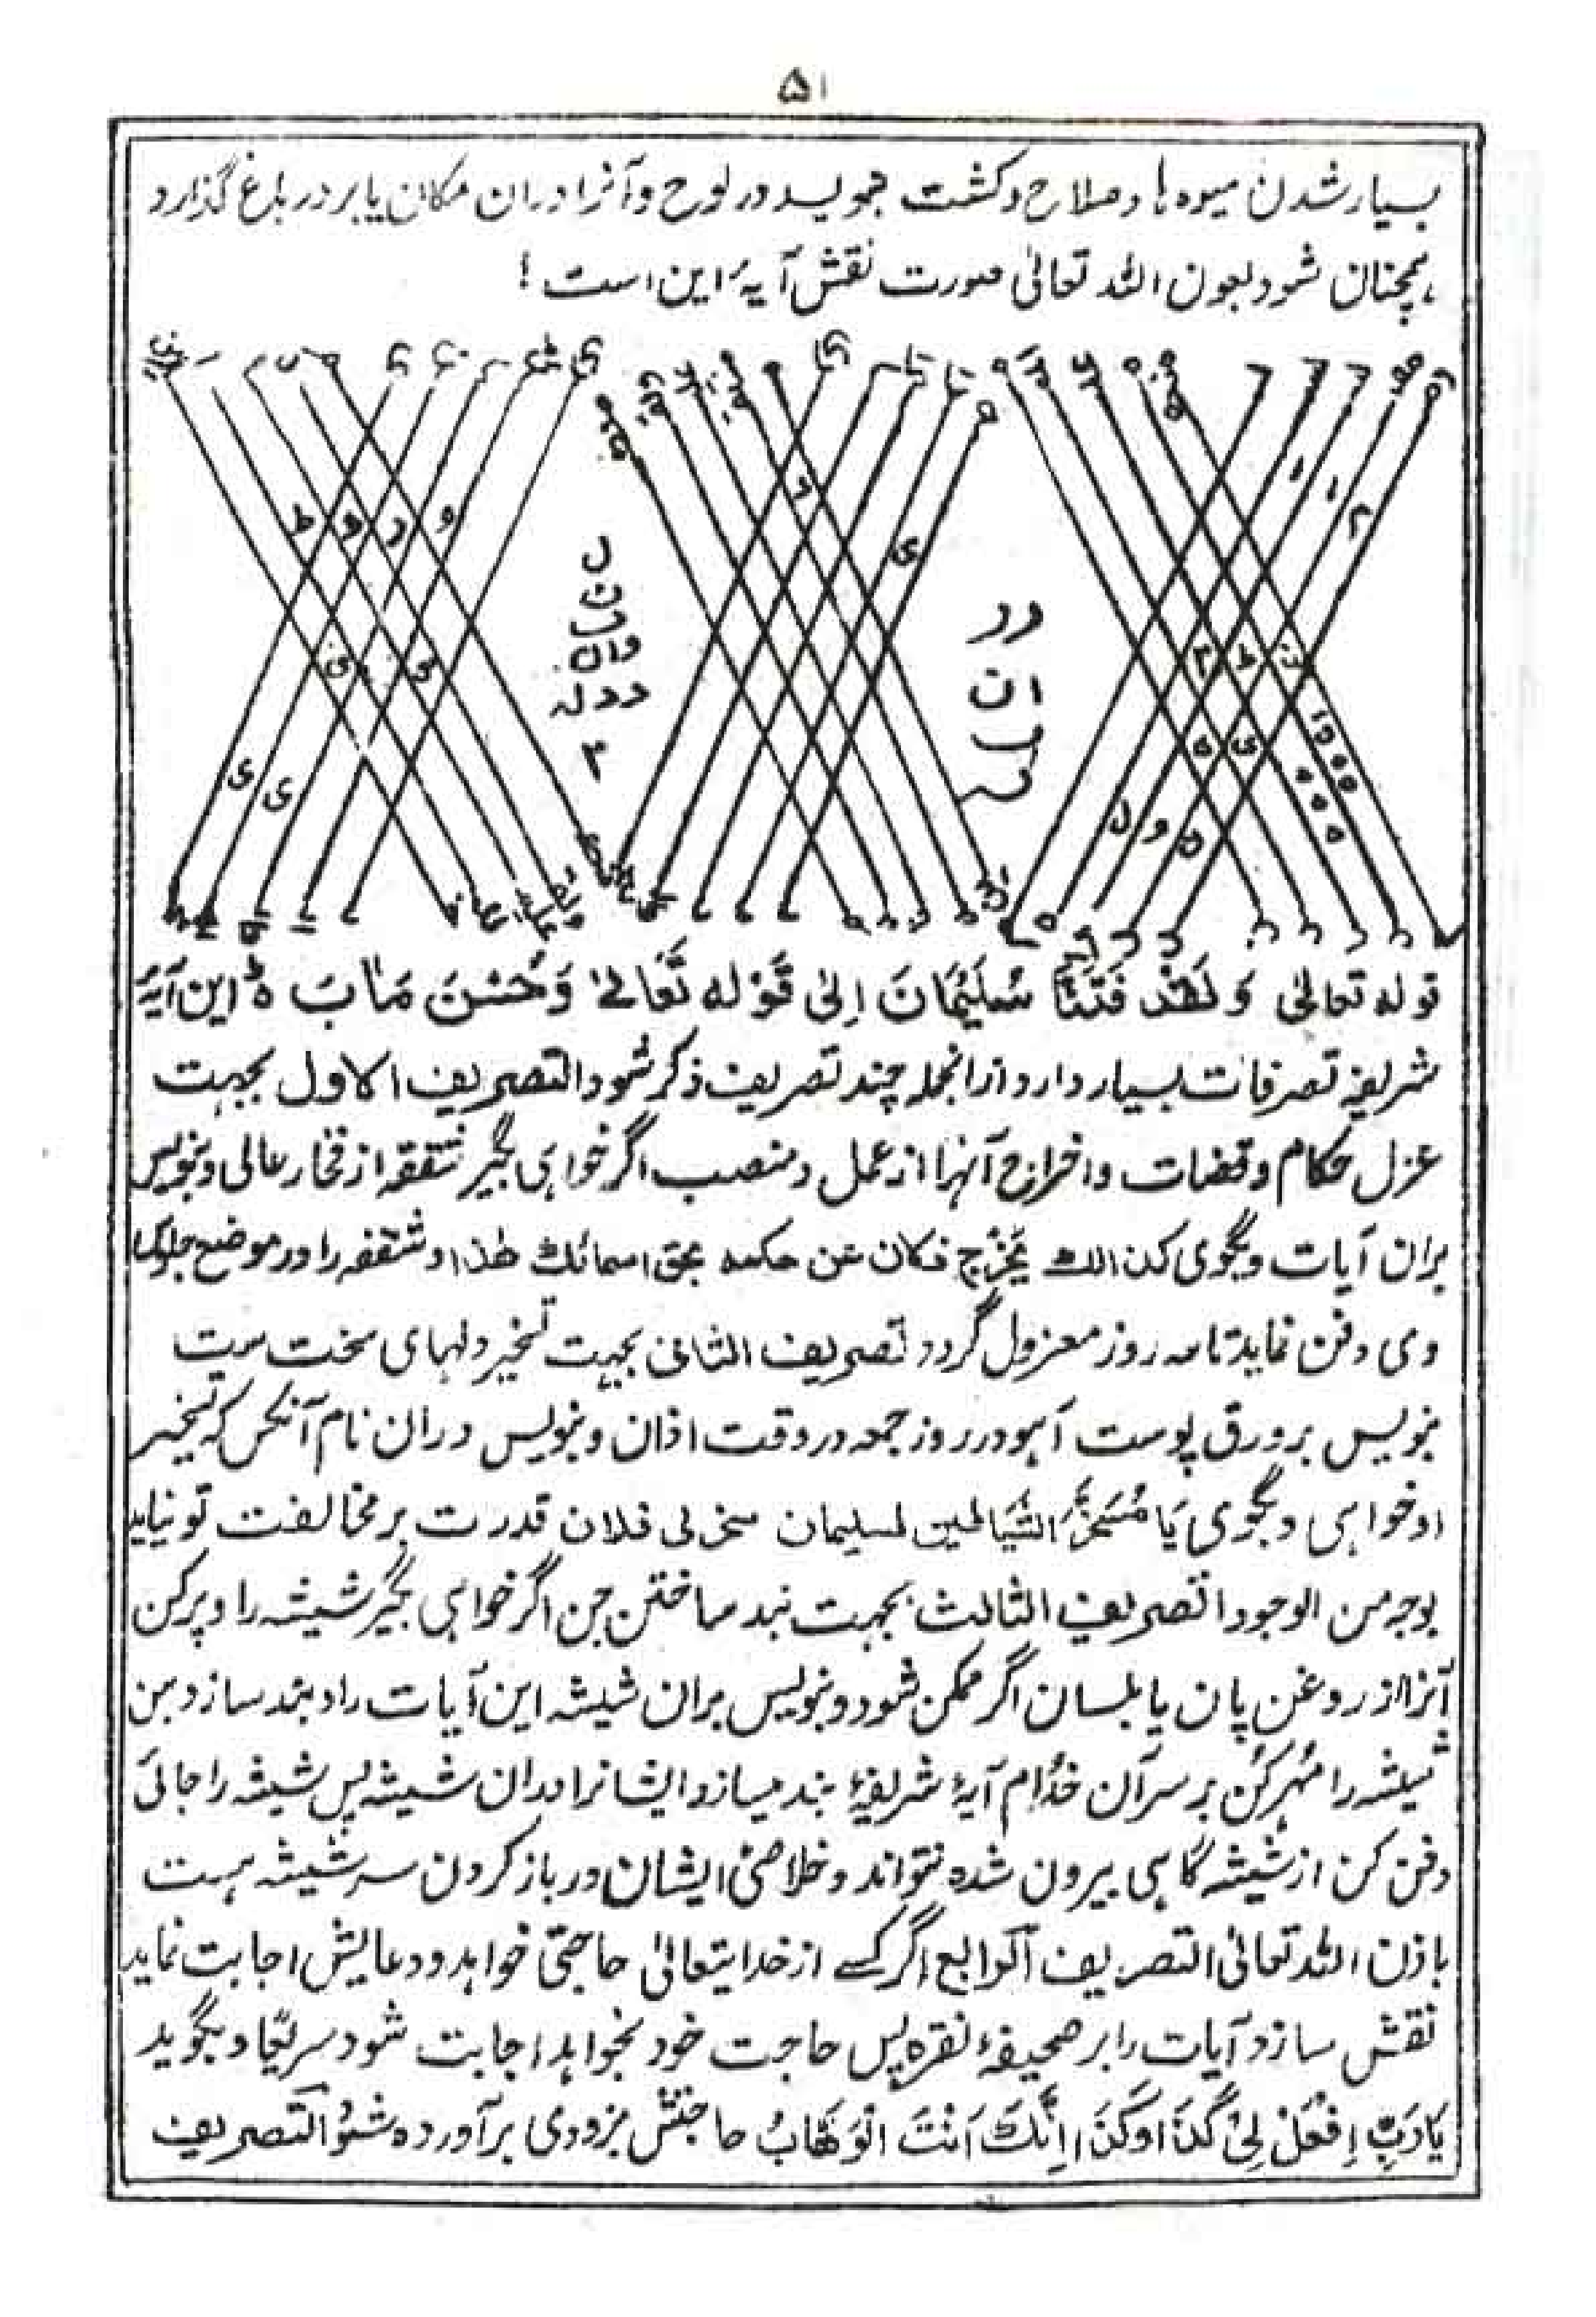 ۵۱
بسیار شدن میوه ها وصلاح وکشت بنویسد در لوح وآنرا دران مکان یا بر در باغ گذارد
همچنان شود بعون الله تعالیٰ صورت نقش آیهٔ این است !
در
ان
قوله تعالیٰ وَلَقَدْ فَتَنَّا سُلَیْمَانَ اِلیٰ قَوْله تَعَالےٰ وَحُسْنَ مَاٰبَ ہ این آیهٔ
شریفه تصرفات بسیار دارد ازانجمله چند تصریف ذکر شود التصریف الاول بجهت
عزل حکام وقضات واخراج آنها از عمل ومنصب اگر خواهی بگیر شقفه از فخار عالی وبنویس
بران آیات وبگوی کذالک یَخْرُج فکان عن حکمه بحق اسمائک هٰذا وشقفه را در موضع جلوس
وی دفن نماید تا سه روز معزول گردد تصریف الثانی بجهت تسخیر دلهای سخت سیرت
بنویس بر ورق پوست آهو در روز جمعه در وقت اذان وبنویس دران نام آنکس که تسخیر
او خواهی وبگوی یَا مُسَخِّرَ الشَّیَاطین لسلیمان سخر لی فلان قدرت بر مخالفت تو نیابد
بوجه من الوجود التصریف الثالث بجهت بند ساختن جن اگر خواهی بگیر شیشه را وپر کن
آنرا از روغن پان یا بلسان اگر ممکن شود وبنویس بران شیشه این آیات را وبند ساز دهن
شیشه را مُهر کُن بر سر آن خُدام آیهٔ شریفهٔ بند میسازد ایشانرا دران شیشه پس شیشه را جائی
دفن کن از شیشه گاهی بیرون شده نتواند وخلاصیٔ ایشان در باز کردن سر شیشه هست
باذن الله تعالیٰ التصریف الرابع اگر کسے از خدایتعالیٰ حاجتی خواهد ودعایش اجابت نماید
نقش سازد آیات را بر صحیفهٔ نقره پس حاجت خود بخواهد اجابت شود سریعًا وبگوید
یَارَبِّ اِفْعَلْ لِیْ کَذَا وَکَذَا اِنَّکَ اَنْتَ الْوَهَّابُ حاجتش بزودی برآورده شَوَد التصریف